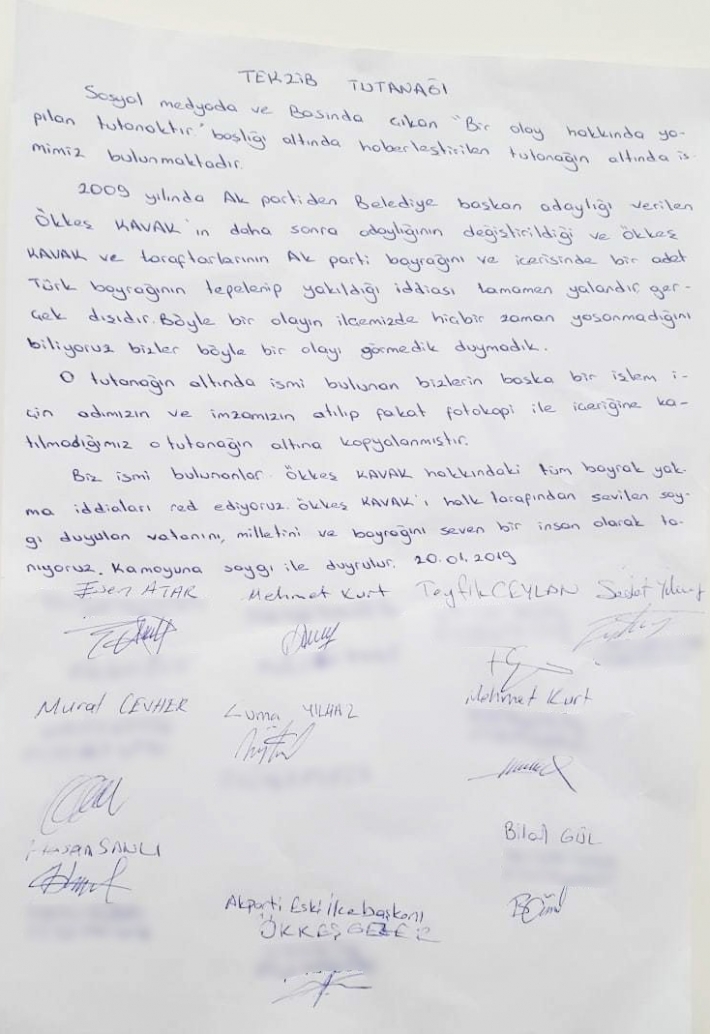 TEKZİB TUTANAĞI
Sosyal medyada ve Basında çıkan "Bir olay hakkında ya-
pılan tutanaktır" başlığı altında haberleştirilen tutanağın altında is-
mimiz bulunmaktadır.
2009 yılında Ak partiden Belediye başkan adaylığı verilen
Ökkeş KAVAK'ın daha sonra adaylığının değiştirildiği ve ökkeş
KAVAK ve taraftarlarının Ak parti bayrağını ve icerisinde bir adet
Türk bayrağının tepelenip yakıldığı iddiası tamamen yalandır, ger-
çek dışıdır. Böyle bir olayın ilçemizde hiçbir zaman yaşanmadığını
biliyoruz bizler böyle bir olayı görmedik duymadık.
O tutanağın altında ismi bulunan bizlerin başka bir işlem i-
çin adımızın ve imzamızın atılıp fakat fotokopi ile içeriğine ka-
tılmadığımız o tutanağın altına kopyalanmıştır.
Biz ismi bulunanlar ökkeş KAVAK hakkındaki tüm bayrak yak-
ma iddiaları red ediyoruz. ökkeş KAVAK'ı halk tarafından sevilen say-
gı duyulan vatanını, milletini ve bayrağını seven bir insan olarak ta-
nıyoruz. Kamoyuna saygı ile duyrulur. 20.01.2019
Esen ATAR Mehmet Kurt Teyfik CEYLAN Sedat Yılmaz
Murat CEVHER Cuma YILMAZ Mehmet Kurt
Hasan SANLI
Bilal GÜL
Akparti Eski ilcebaşkanı
ÖKKEŞ GEZER